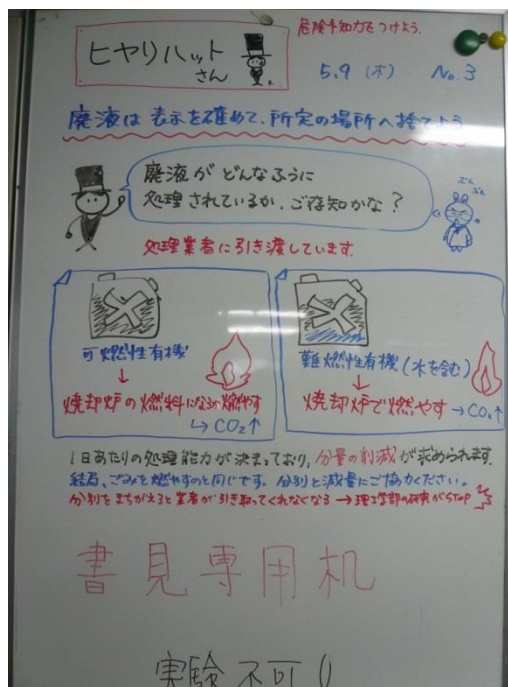 危険予知力をつけよう.
ヒヤリハット
さん
5.9 (木) No.3
廃液は 表示を確めて、所定の場所へ捨てよう
廃液が どんなふうに
処理されているか、ご存知かな?
ぷん
ぷん
処理業者に引き渡しています.
可燃性有機
↓
焼却炉の燃料になる 燃やす
↳ CO₂↑
難燃性有機 (水を含む)
↓
焼却炉で燃やす → CO₂↑
1日あたりの処理能力が決まっており, 分量の削減が求められます.
結局、ごみを燃やすのと同じです。分別と減量にご協力ください。
分別をまちがえると業者が引き取ってくれなくなる → 理工学部の研究がSTOP
書見専用机
実験不可!!